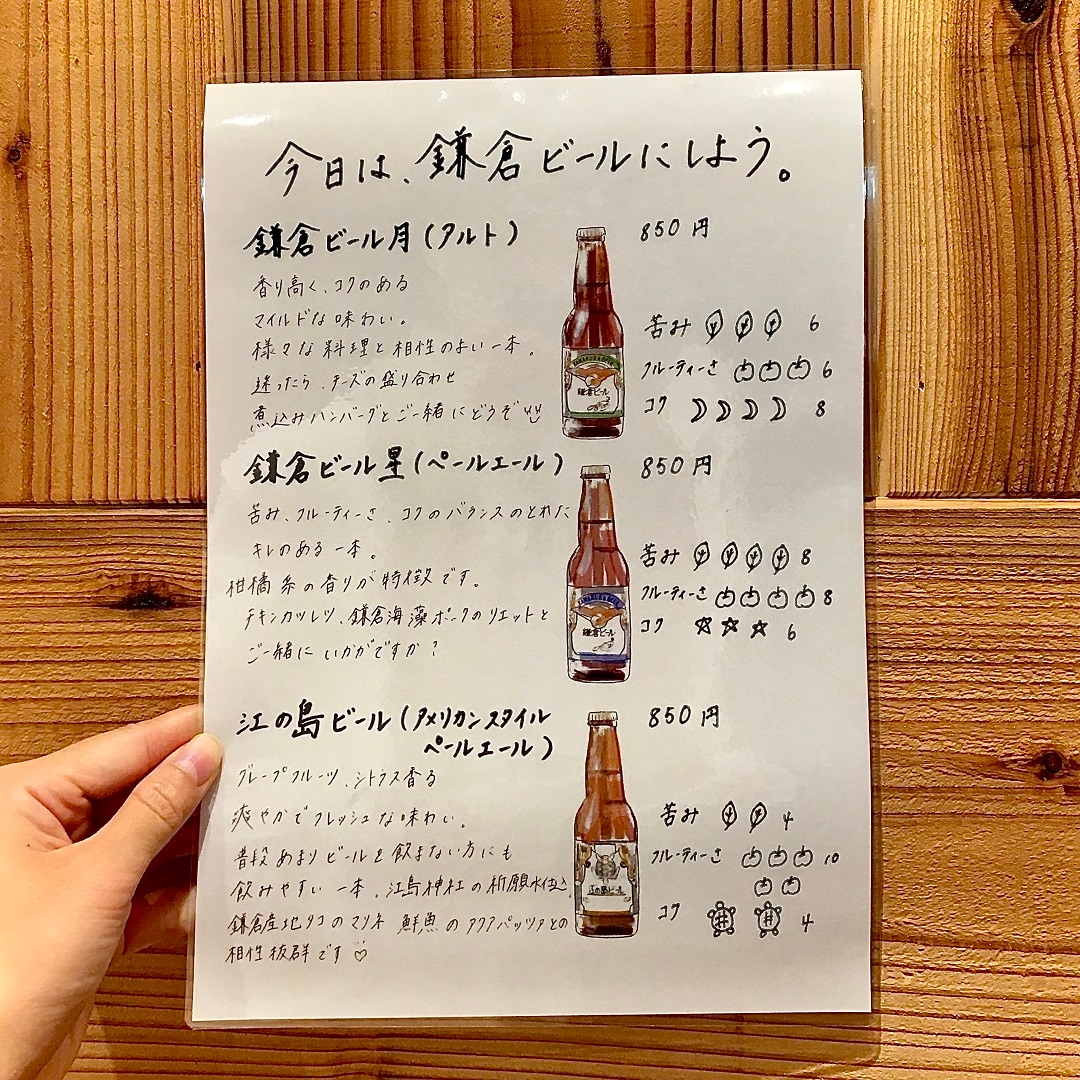 今日は、鎌倉ビールにしよう。
鎌倉ビール月(アルト)
850円
香り高く、コクのある
マイルドな味わい。
様々な料理と相性のよい一本。
迷ったら、チーズの盛り合わせ
煮込みハンバーグとご一緒にどうぞ
苦み 6
フルーティーさ 6
コク 8
鎌倉ビール
鎌倉ビール星(ペールエール)
850円
苦み、フルーティーさ、コクのバランスのとれた
キレのある一本。
柑橘系の香りが特徴です。
チキンカツレツ、鎌倉海藻ポークのリエットと
ご一緒にいかがですか?
苦み 8
フルーティーさ 8
コク 6
鎌倉ビール
江の島ビール(アメリカンスタイル
ペールエール)
850円
グレープフルーツ、シトラス香る
爽やかでフレッシュな味わい。
普段あまりビールを飲まない方にも
飲みやすい一本。江島神社の祈願水仕込
鎌倉産地タコのマリネ 鮮魚のアクアパッツァとの
相性抜群です♡
苦み 4
フルーティーさ 10
コク 4
江の島ビール